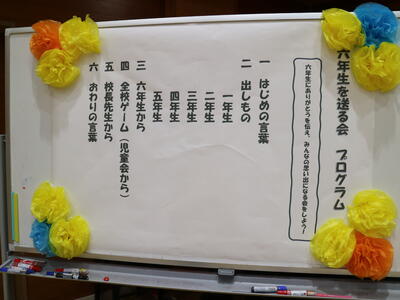 六年生を送る会　プログラム
六年生にありがとうを伝え、みんなの思い出になる会をしよう！
一　はじめの言葉
二　出しもの
一年生
二年生
三年生
四年生
五年生
三　六年生から
四　全校ゲーム（児童会から）
五　校長先生から
六　おわりの言葉